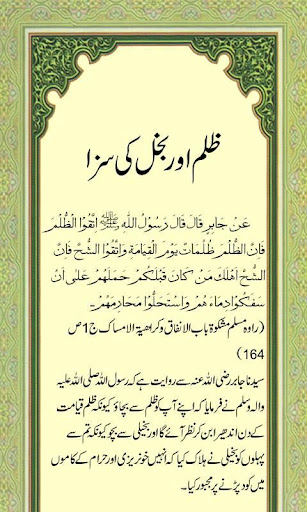 ظلم اور بخل کی سزا
عَنْ جَابِرٍ قَالَ قَالَ رَسُوْلُ اللهِ ﷺ اِتَّقُوْا الظُّلْمَ
فَاِنَّ الظُّلْمَ ظُلُمَاتٌ يَوْمَ الْقِيَامَةِ وَاتَّقُوْا الشُّحَّ فَاِنَّ
الشُّحَّ اَهْلَكَ مَنْ كَانَ قَبْلَكُمْ حَمَلَهُمْ عَلٰى اَنْ
سَفَكُوْا دِمَاءَ هُمْ وَاسْتَحَلُّوْا مَحَارِمَهُمْ۔
(راوہ مسلم مشکوۃ باب الانفاق وکراھیۃ الامساک ج1 ص
164)
سیدنا جابر رضی اللہ عنہ سے روایت ہے کہ رسول اللہ صلی اللہ علیہ
والہ وسلم نے فرمایا کہ اپنے آپ کو ظلم سے بچاؤ کیونکہ ظلم قیامت
کے دن اندھیرا بن کر نظر آئے گا اور بخیلی سے بچو کیونکہ تم سے
پہلوں کو بخیلی نے ہلاک کیا کہ انہیں خونریزی اور حرام کے کاموں
میں کود پڑنے پر مجبور کیا۔